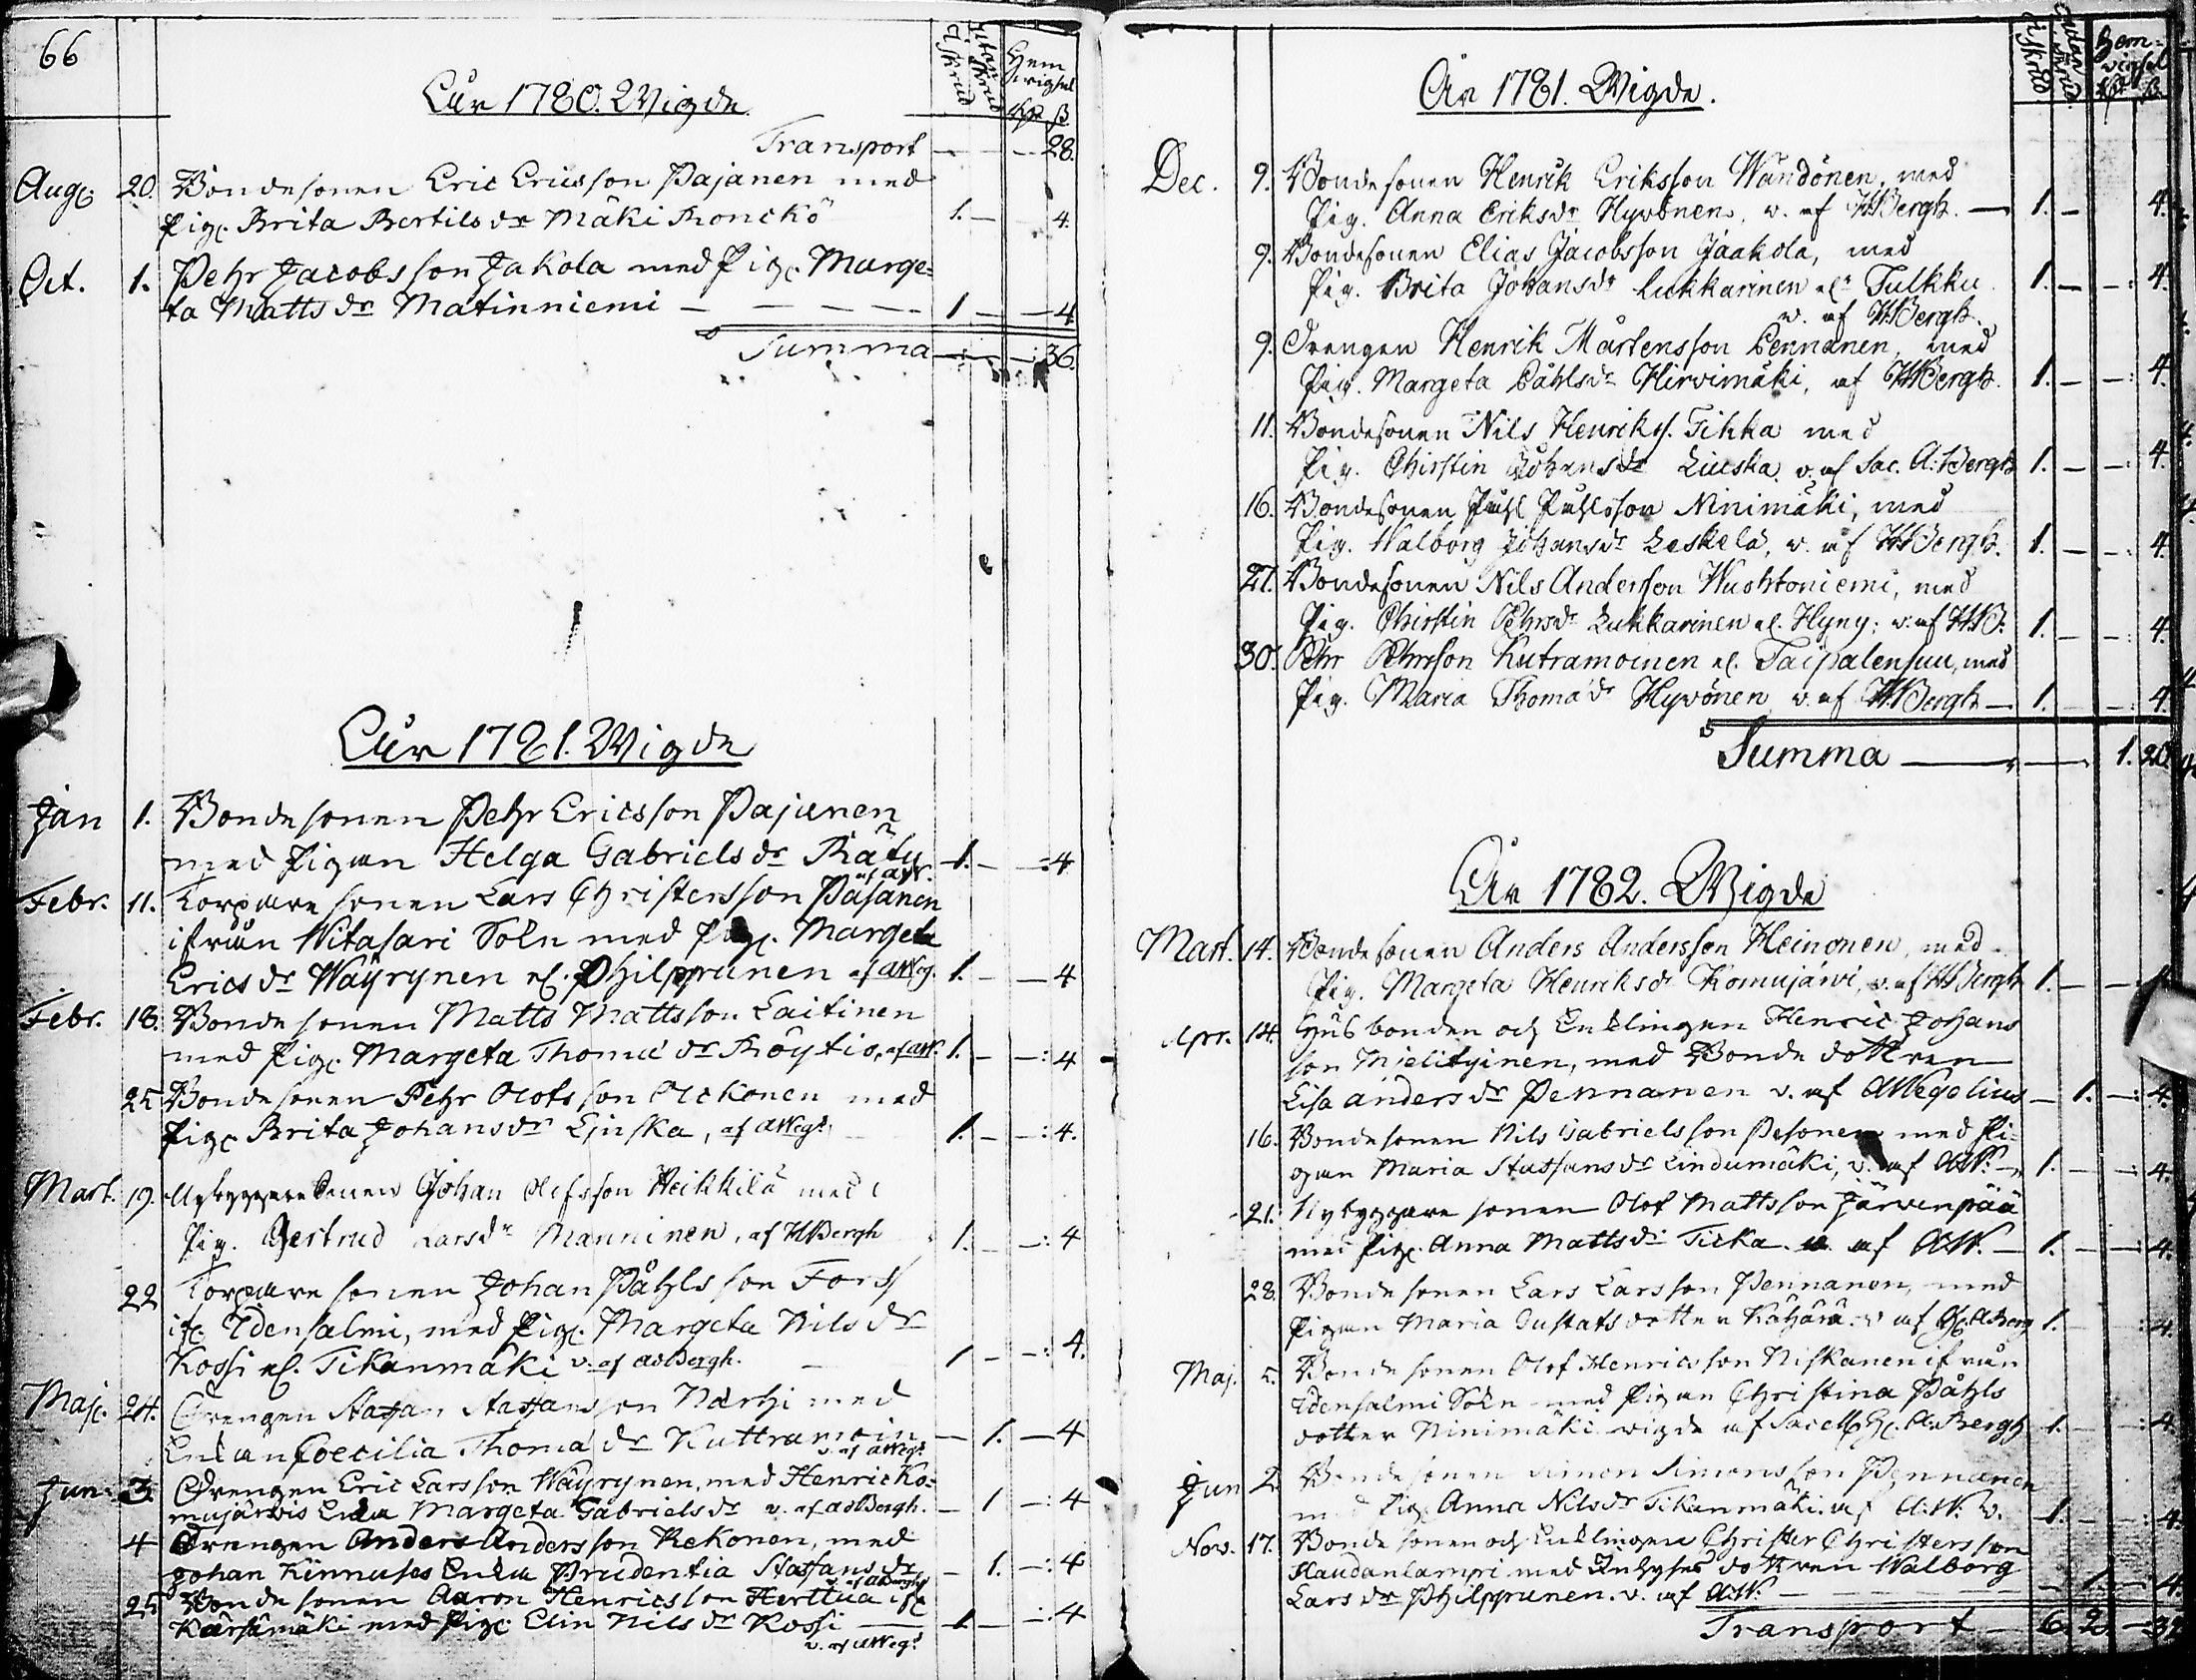 66
i skrud
utan skrud
Hem wigsel
Rd ß
Åhr 1780. Wigde
Transport — — 28.
Aug. 20. Bondesonen Eric Ericsson Pajanen med
Pig. Brita Bertilsdr Mäki Ronckö 1. — 4.
Oct. 1. Pehr Jacobsson Jakola med Pig. Marge-
ta Mattsdr Matinniemi — — — — 1 — — 4
Summa — : — — : 36.
Åhr 1781. Wigde
Jan 1. Bondesonen Pehr Ericsson Pajanen
med Pigan Helga Gabrielsdr Räty 1. — : 4
af AW.
Febr. 11. Torpare sonen Lars Christersson Pasanen
ifrån Witasari Sokn med Pig. Margeta
Ericsdr Wäyrynen el. Philppunen af AWeg. 1. — — 4
Febr. 18. Bonde sonen Matts Mattsson Laitinen
med Pig. Margeta Thomædr Röytiö, af AW. 1. — — : 4
25 Bonde sonen Pehr Olofsson Ockonen med
Pig. Brita Johansdr Ljuska, af AWegs. 1. — — : 4.
Mart. 19. Nybyggare sonen Johan Olofsson Heikkilä med
Pig. Gertrud Larsdr Manninen, af HBergh 1. — — : 4
22 Torpare sonen Johan Påhlsson Forss
if. Idensalmi, med Pig. Margeta Nilsdr
Kossi el. Tikanmäki v. af AdBergh. — 1 — — : 4.
Maj. 24. Drengen Staffan Staffansson Närhi med
Enkan Coecilia Thomædr Kuttramoin — 1. — 4
v. af AWegs
Jun: 3. Drengen Eric Larsson Wäyrynen, med Henric Ko-
mujärvis Enka Margeta Gabrielsdr v. af AdBergh. — 1 — : 4
4 Drengen Anders Andersson Rekonen, med
Johan Kinnuses Enka Prudentia Staffansdr — 1. — : 4
v. af AdBergh
25 Bonde sonen Aaron Henricsson Herttua if.
Kärsämäki med Pig. Elin Nilsdr Kossi — 1 — — : 4
v. af AWegs
i skrud
utan skrud
Hem-wigsel
Rd ß
År 1781. Wigde.
Dec. 9. Bonde sonen Henrik Eriksson Wändönen, med
Pig. Anna Eriksdr Hyvönen, v. af HBergh. — 1. — 4.
9. Bondesonen Elias Jacobsson Jaakola, med
Pig. Brita Johansdr Lukkarinen elr Tulkku. 1. — — : 4.
v. af HBergh.
9. Drengen Henrik Mårtensson Pennanen, med
Pig. Margeta Påhlsdr Hirvimäki, af HBergh. 1. — — : 4.
11. Bondesonen Nils Henrikss. Tikka med
Pig. Christin Johansdr Liuska v. af Sac. A. Bergh 1. — — : 4.
16. Bondesonen Pahl Pahlsson Ninimäki, med
Pig. Walborg Johansdr Leskelä, v. af HBergh. 1. — — : 4.
27. Bondesonen Nils Andersson Wuohtoniemi, med
Pig. Christin Pehrsdr Lukkarinen el. Hyny: v. af HB: 1. — — : 4.
30. Pehr Pehrsson Kutramoinen el. Taipalensuu, med
Pig. Maria Thomædr Hyvönen v. af HBergh — 1. — — : 4.
Summa — — 1. 20.
År 1782. Wigde
Mart. 14. Bondesonen Anders Andersson Heinonen, med
Pig. Margeta Henriksdr Komujärvi, v. af HBergh 1. — — : 4
Apr. 14. Husbonden och Enklingen Henric Johans
son Mielityinen, med Bonde dottren
Lisa Andersdr Pennanen v. af AWegelius — 1. — : 4.
16. Bonde sonen Nils Gabrielsson Pesonen med Pi-
gan Maria Staffansdr Lindumäki, v. af AW. — 1. — — : 4.
21. Nybyggare sonen Olof Mattsson Järvenpää
med Pig. Anna Mattsdr Ticka. v. af AW. — 1. — — : 4.
28. Bonde sonen Lars Larsson Pennanen, med
Pigan Maria Gustafs dotter Kähärä. v af H. A. Berg 1. — : 4.
Maj. 5. Bonde sonen Olof Henricsson Niskanen ifrån
Idensalmi Sokn med Pigan Christina Påhls
dotter Ninimäki wigde af Sacell. H. A. Bergh 1. — — : 4.
Jun 2. Bonde sonen Simon Simonsson Pennanen
med Pig. Anna Nilsdr Tikanmäki. af A.W. v. 1. — — : 4.
Nov. 17. Bonde sonen och Enklingen Christer Christersson
Haudanlampi med Inhyses dottren Walborg
Larsdr Philppunen. v. af A.W. — — 1. — : 4.
Transport — 6. 2. — : 32